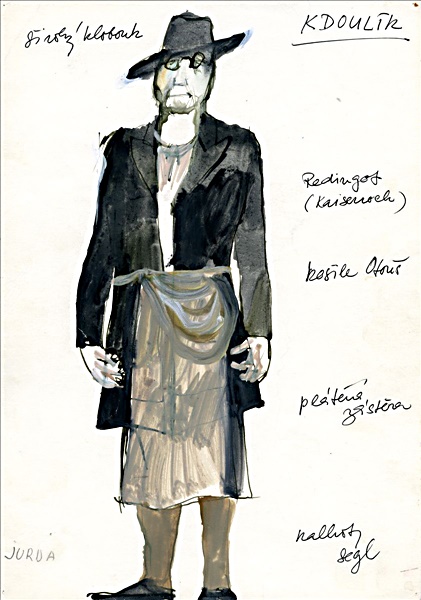 široký klobouk
KDOULÍK
Redingot
(Kaiserrock)
košile Otouš
plátěná
zástěra
kalhoty
segl
JURDA